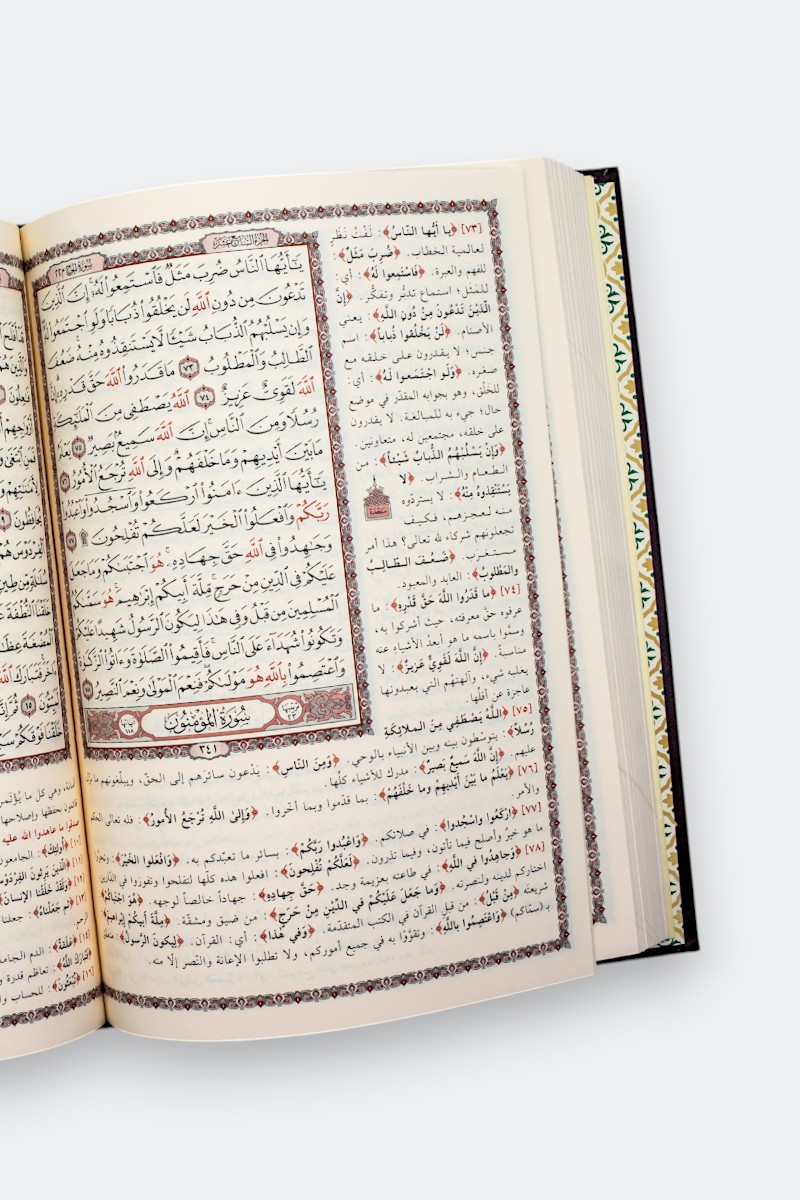 الجزء السابع عشر
سورة الحج ٢٢
يَـٰٓأَيُّهَا ٱلنَّاسُ ضُرِبَ مَثَلٌ فَٱسْتَمِعُوا۟ لَهُۥٓ إِنَّ ٱلَّذِينَ
تَدْعُونَ مِن دُونِ ٱللَّهِ لَن يَخْلُقُوا۟ ذُبَابًا وَلَوِ ٱجْتَمَعُوا۟ لَهُۥ
وَإِن يَسْلُبْهُمُ ٱلذُّبَابُ شَيْـًٔا لَّا يَسْتَنقِذُوهُ مِنْهُ ضَعُفَ
ٱلطَّالِبُ وَٱلْمَطْلُوبُ ٧٣ مَا قَدَرُوا۟ ٱللَّهَ حَقَّ قَدْرِهِۦٓ إِنَّ
ٱللَّهَ لَقَوِىٌّ عَزِيزٌ ٧٤ ٱللَّهُ يَصْطَفِى مِنَ ٱلْمَلَـٰٓئِكَةِ
رُسُلًا وَمِنَ ٱلنَّاسِ إِنَّ ٱللَّهَ سَمِيعٌۢ بَصِيرٌ ٧٥ يَعْلَمُ
مَا بَيْنَ أَيْدِيهِمْ وَمَا خَلْفَهُمْ وَإِلَى ٱللَّهِ تُرْجَعُ ٱلْأُمُورُ ٧٦
يَـٰٓأَيُّهَا ٱلَّذِينَ ءَامَنُوا۟ ٱرْكَعُوا۟ وَٱسْجُدُوا۟ وَٱعْبُدُوا۟
رَبَّكُمْ وَٱفْعَلُوا۟ ٱلْخَيْرَ لَعَلَّكُمْ تُفْلِحُونَ ۩ ٧٧
وَجَـٰهِدُوا۟ فِى ٱللَّهِ حَقَّ جِهَادِهِۦ هُوَ ٱجْتَبَىٰكُمْ وَمَا جَعَلَ
عَلَيْكُمْ فِى ٱلدِّينِ مِنْ حَرَجٍ مِّلَّةَ أَبِيكُمْ إِبْرَٰهِيمَ هُوَ سَمَّىٰكُمُ
ٱلْمُسْلِمِينَ مِن قَبْلُ وَفِى هَـٰذَا لِيَكُونَ ٱلرَّسُولُ شَهِيدًا عَلَيْكُمْ
وَتَكُونُوا۟ شُهَدَآءَ عَلَى ٱلنَّاسِ فَأَقِيمُوا۟ ٱلصَّلَوٰةَ وَءَاتُوا۟ ٱلزَّكَوٰةَ
وَٱعْتَصِمُوا۟ بِٱللَّهِ هُوَ مَوْلَىٰكُمْ فَنِعْمَ ٱلْمَوْلَىٰ وَنِعْمَ ٱلنَّصِيرُ ٧٨
ترتيبها ٢٣
سورة المؤمنون
آياتها ١١٨
٣٤١
[٧٣] ﴿يا أَيُّها النّاسُ﴾: لَفْتُ نَظَرٍ
لعالمية الخطاب. ﴿ضُرِبَ مَثَلٌ﴾:
للفهم والعبرة. ﴿فَاسْتَمِعُوا لَهُ﴾: أي:
للمَثَل؛ استماع تدبُّر وتفكُّر. ﴿إِنَّ
الَّذِينَ تَدْعُونَ مِنْ دُونِ اللَّهِ﴾: يعني
الأصنام. ﴿لَنْ يَخْلُقُوا ذُباباً﴾: اسم
جنس؛ لا يقدرون على خلقه مع
صغره. ﴿وَلَوِ اجْتَمَعُوا لَهُ﴾: أي:
للخَلْق، وهو بجوابه المقدّر في موضع
حال؛ جيء به للمبالغة. لا يقدرون
على خلقه، مجتمعين له، متعاونين.
﴿وَإِنْ يَسْلُبْهُمُ الذُّبابُ شَيْئاً﴾: من
الطعام والشراب. ﴿لا
يَسْتَنْقِذُوهُ مِنْهُ﴾: لا يستردّوه
منه لعجزهم، فكيف
تجعلونهم شركاء لله تعالى؟ هذا أمر
مستغرَب. ﴿ضَعُفَ الطّالِبُ
والمَطْلُوبُ﴾: العابد والمعبود.
[٧٤] ﴿ما قَدَرُوا اللَّهَ حَقَّ قَدْرِهِ﴾: ما
عرفوه حقّ معرفته، حيث أشركوا به،
وسمَّوا باسمه ما هو أبعدُ الأشياءِ عنه
مناسبةً. ﴿إِنَّ اللَّهَ لَقَوِيٌّ عَزِيزٌ﴾: لا
يغلبه شيء، وآلهتهم التي يعبدونها
عاجزة عن أقلّها.
[٧٥] ﴿اللَّهُ يَصْطَفِي مِنَ الملائِكَةِ
رُسُلاً﴾: يتوسّطون بينه وبين الأنبياء بالوحي. ﴿وَمِنَ النّاسِ﴾: يَدْعون سائرهم إلى الحقّ، ويبلّغونهم ما نزل
عليهم. ﴿إِنَّ اللَّهَ سَمِيعٌ بَصِيرٌ﴾: مدرك للأشياء كلّها.
[٧٦] ﴿يَعْلَمُ ما بَيْنَ أَيْدِيهِمْ وَما خَلْفَهُمْ﴾: بما قدّموا وبما أخّروا. ﴿وَإِلَى اللَّهِ تُرْجَعُ الأُمُورُ﴾: فله تعالى الحكم
والأمر.
[٧٧] ﴿ارْكَعُوا واسْجُدُوا﴾: في صلاتكم. ﴿وَاعْبُدُوا رَبَّكُمْ﴾: بسائر ما تعبّدكم به. ﴿وَافْعَلُوا الخَيْرَ﴾:
ما هو خيرٌ وأصلح فيما تأتون، وفيما تذرون. ﴿لَعَلَّكُمْ تُفْلِحُونَ﴾: افعلوا هذه كلّها لتفلحوا وتفوزوا في الدّارين
[٧٨] ﴿وَجاهِدُوا فِي اللَّهِ﴾: في طاعته بعزيمة وجد. ﴿حَقَّ جِهادِهِ﴾: جهاداً خالصاً لوجهه. ﴿هُوَ اجْتَباكُمْ﴾:
اختاركم لدينه ولنصرته. ﴿وَما جَعَلَ عَلَيْكُمْ فِي الدِّينِ مِنْ حَرَجٍ﴾: من ضيق ومشقّة. ﴿مِلَّةَ أَبِيكُمْ إِبْراهِيمَ﴾:
شريعته ﴿مِنْ قَبْلُ﴾: من قبل القرآن في الكتب المتقدّمة. ﴿وَفِي هَذا﴾: أي: القرآن. ﴿لِيَكُونَ الرَّسُولُ﴾:
بـ(سمّاكم) ﴿وَاعْتَصِمُوا بِاللَّهِ﴾: وتقوَّوْا به في جميع أموركم، ولا تطلبوا الإعانة والنّصر إلّا منه.